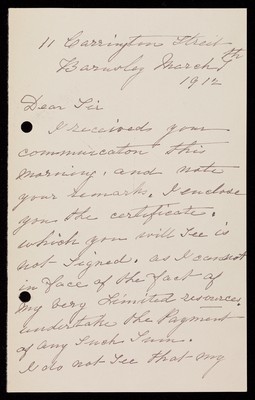 11 Carrington Street
Barnsley March 7th
1912
Dear Sir
I received your
communicaton this
morning, and note
your remarks, I enclose
you the certificate,
which you will see is
not signed, as I cannot
in face of the fact of
my very limited resources,
undertake the Payment
of any such sum.
I do not see that my